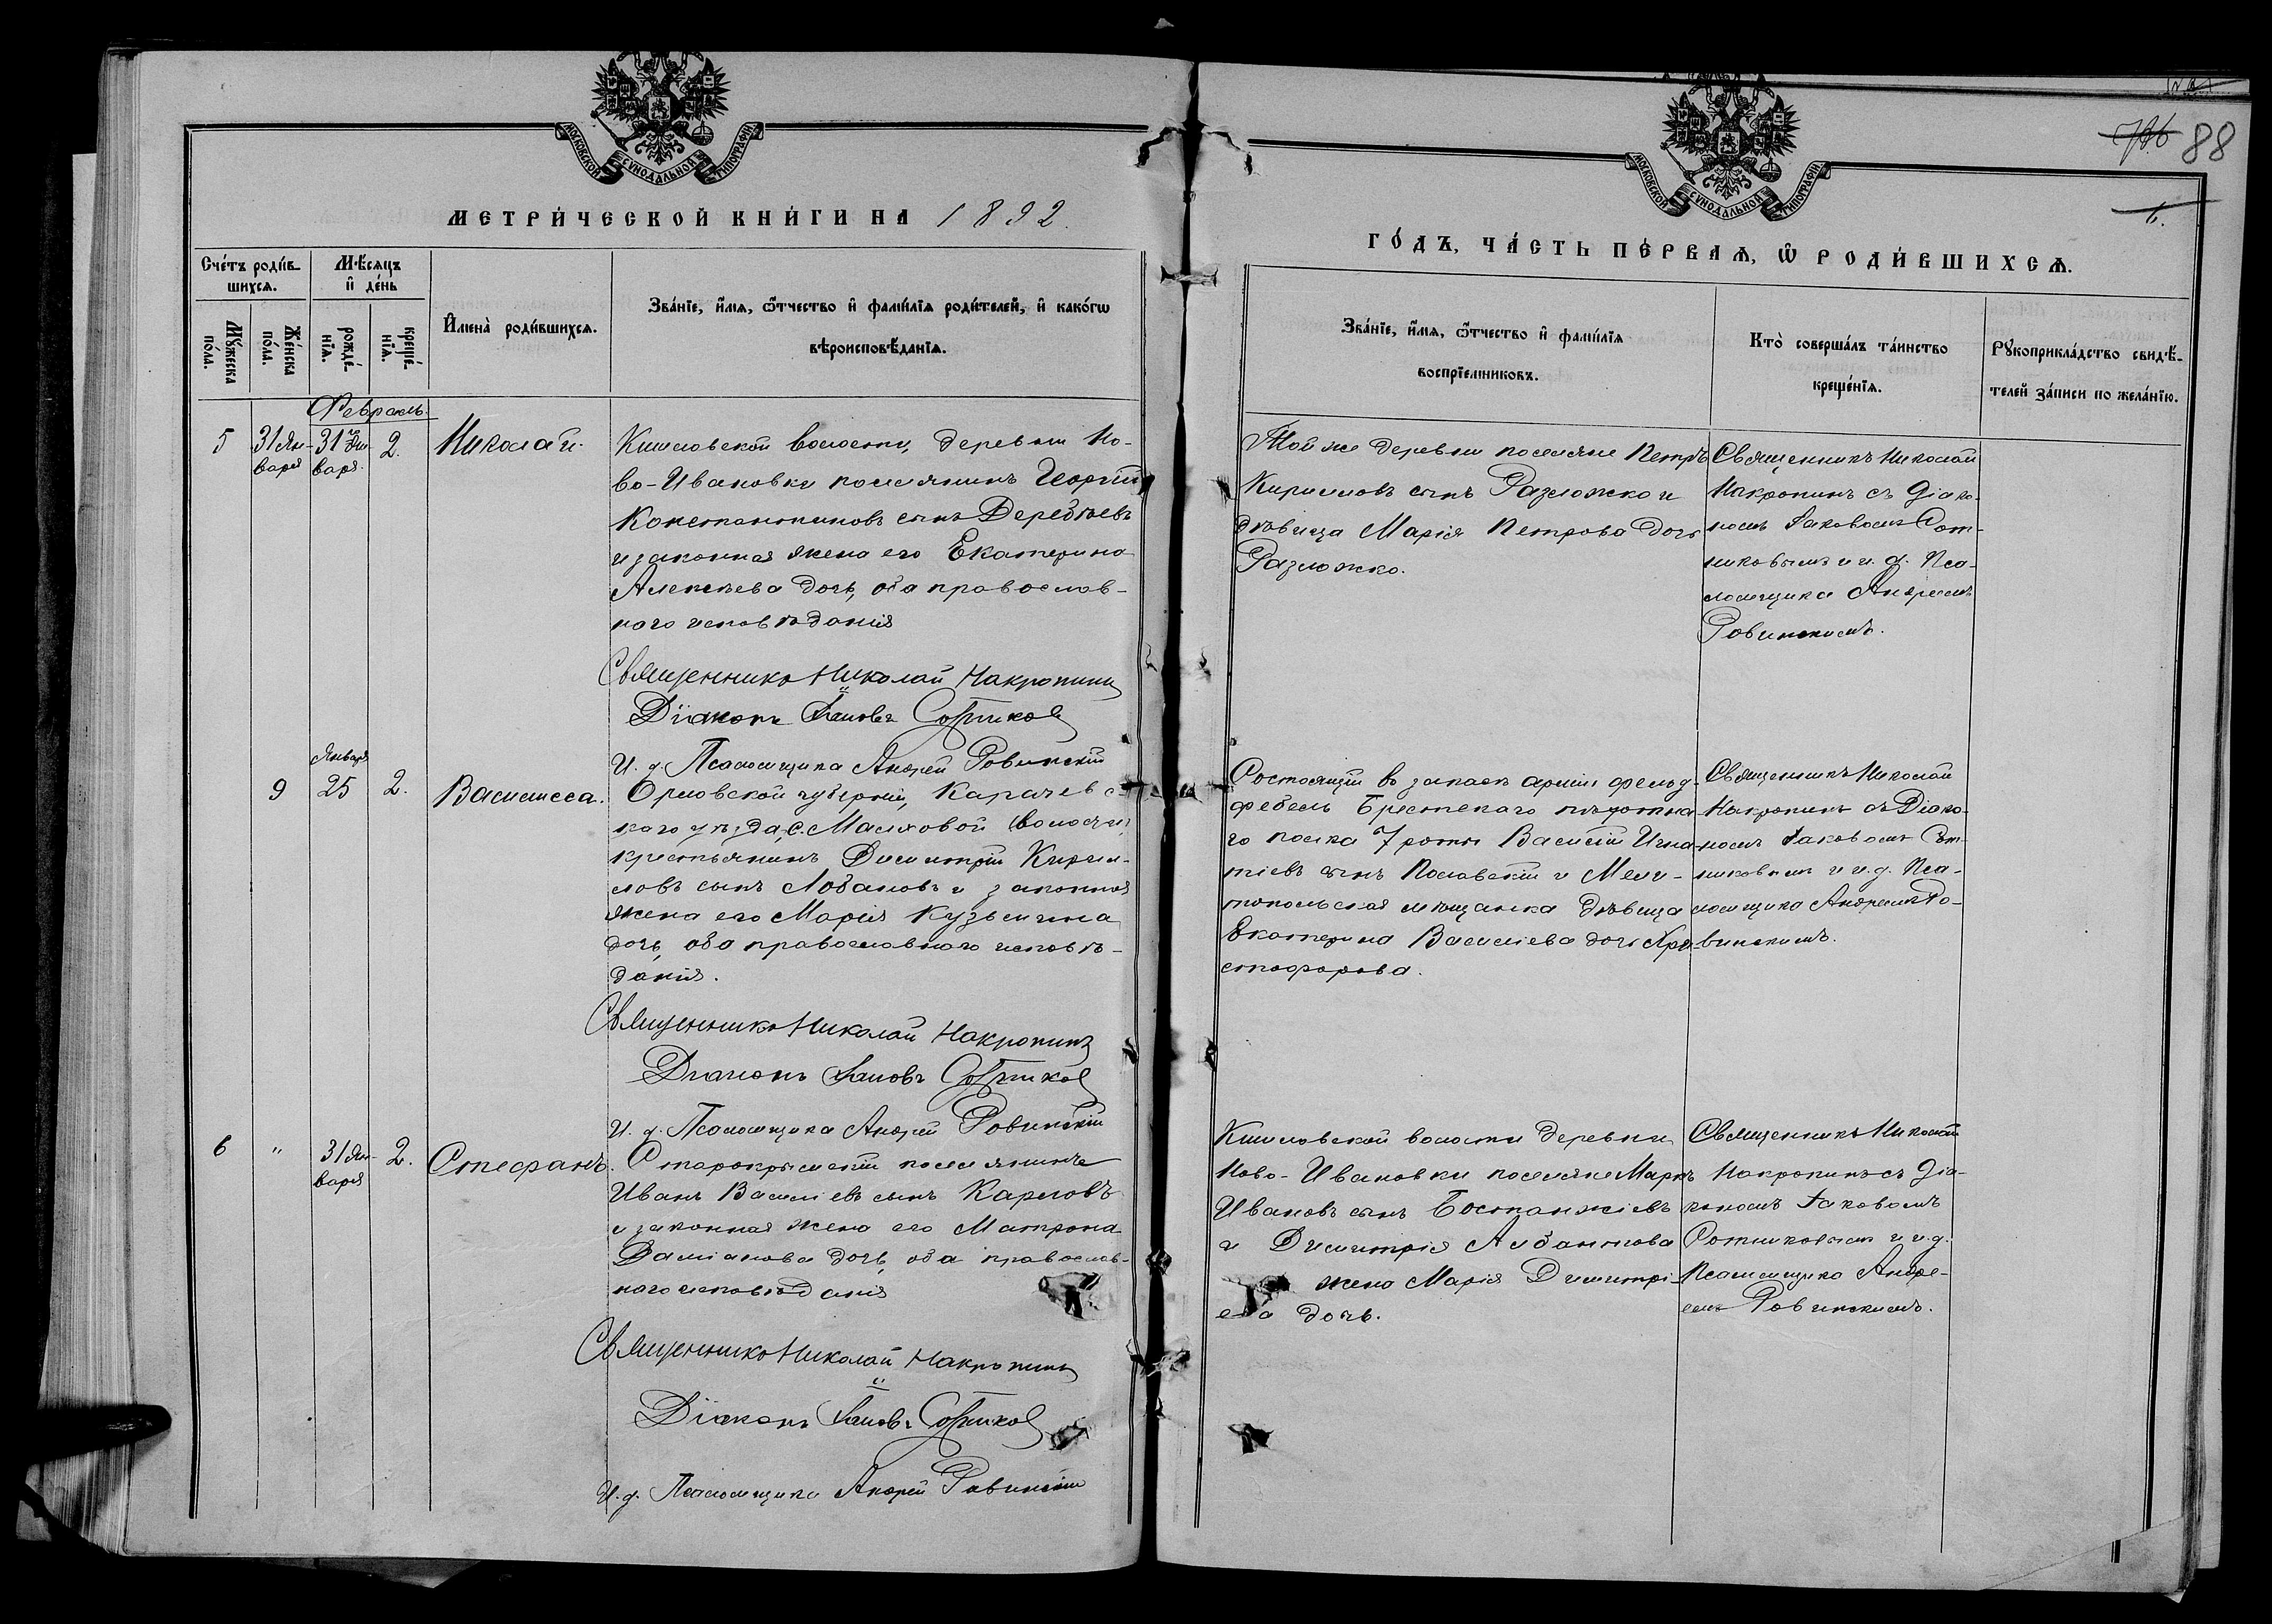 МОСКОВСКОЙ СѴНОДАЛЬНОЙ ТИПОГРАФІИ
МЕТРИ́ЧЕСКОЙ КНИ́ГИ НА 1892.
Сче́тъ роди́в-
шихсѧ.
Мѣ́сѧцъ
и҆ де́нь
Мꙋ́жеска
по́ла.
Же́нска
по́ла.
рожде́-
нїѧ.
креще́-
нїѧ.
И҆мена̀ роди́вшихсѧ.
Зва́нїе, и҆́мѧ, ѿтчество и҆ фами́лїѧ роди́телей, и҆ како́гѡ
вѣроисповѣ́данїѧ.
Февраль.
5
31 Ян-
варя
31 Ян-
варя.
2.
Николай.
Кишловской волости, деревни Но-
во-Ивановки поселянинъ Георгій
Константиновъ сынъ Деребѣевъ
и законная жена его Екатерина
Алексѣева дочь, оба православ-
наго исповѣданія
Священникъ Николай Накропинъ
Діаконъ Іаковъ Сотников
И. д. Псаломщика Андрей Ровинскій
9
Января
25
2.
Василисса.
Орловской губерніи, Карачевс-
каго уѣзда, С. Масловой волости,
крестьянинъ Димитрій Кирил-
ловъ сынъ Лобановъ и законная
жена его Марія Кузьмина
дочь, оба православнаго исповѣ-
данія.
Священникъ Николай Накропинъ
Діаконъ Іаковъ Сотников
И. д. Псаломщика Андрей Ровинскій
6
"
31 Ян-
варя
2.
Стефанъ.
Старокрымскій поселянинъ
Иванъ Василіевъ сынъ Карповъ
и законная жена его Матрона
Даміанова дочь, оба православ-
наго исповѣданія
Священникъ Николай Накропинъ
Діаконъ Іаковъ Сотников
И. д. Псаломщика Андрей Ровинскій
88
МОСКОВСКОЙ СѴНОДАЛЬНОЙ ТИПОГРАФІИ
ГО́ДЪ, ЧА́СТЬ ПЕ́РВАѦ, Ѡ҆ РОДИ́ВШИХСѦ.
Зва́нїе, и҆́мѧ, ѿтчество и҆ фами́лїѧ
воспрїемниковъ.
Кто̀ соверша́лъ та́инство
креще́нїѧ.
Рꙋкоприкла́дство свидѣ́-
телей за́писи по жела́нїю.
Той же деревни поселяне Петръ
Кирилловъ сынъ Разложко и
дѣвица Марія Петрова дочь
Разложко.
Священникъ Николай
Накропинъ съ діако-
номъ Іаковомъ Сот-
никовымъ и и. д. Пса-
ломщика Андреемъ
Ровинскимъ.
Состоящій въ запасѣ арміи фельд-
фебель Брестскаго пѣхотна-
го полка 7 роты Василій Игна-
тіевъ сынъ Пославскій и Мели-
топольская мѣщанка дѣвица
Екатерина Василіева дочь Хри-
стофорова.
Священникъ Николай
Накропинъ съ Діако-
номъ Іаковомъ Сот-
никовымъ и и. д. Пса-
ломщика Андреемъ Ро-
винскимъ.
Кишловской волости деревни
Ново-Ивановки поселяне Маркъ
Ивановъ сынъ Бостанжіевъ
и Димитрія Албантова
жена Марія Димитрі-
ева дочь.
Священникъ Николай
Накропинъ съ діа-
кономъ Іаковомъ
Сотниковымъ и и. д.
Псаломщика Андре-
емъ Ровинскимъ.